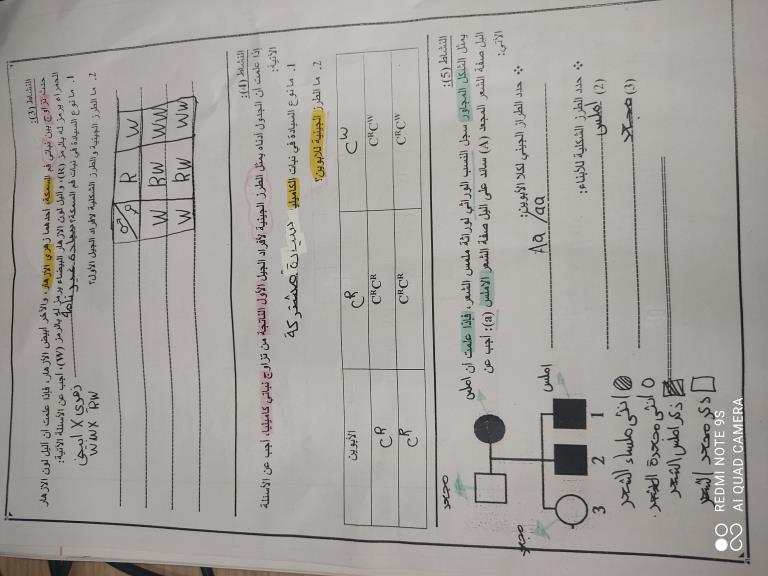 النشاط (3):
حدث تزاوج بين نباتي فم السمكة، أحدهما زهري الأزهار، والآخر ابيض الأزهار، فإذا علمت ان أليل لون الازهار
الحمراء يرمز له بالرمز (R)، وأليل لون الازهار البيضاء يرمز له بالرمز (W)، اجب عن الأسئلة الآتية:
1. ما نوع السيادة في نبات فم السمكة؟ سيادة غير تامة
زهري X ابيض
WW X RW
2. ما الطرز الجينية والطرز الشكلية لأفراد الجيل الأول؟
♂ ♀ R W
W RW WW
W RW WW
النشاط (4):
إذا علمت ان الجدول ادناه يمثل الطرز الجينية لأفراد الجيل الأول الناتجة من تزاوج نباتي كاميليا، أجب عن الأسئلة
الآتية:
1. ما نوع السيادة في نبات الكاميليا سيادة مشتركة
2. ما الطرز الجينية للابوين؟
الأبوين Cᴿ Cᵂ
Cᴿ CᴿCᴿ CᴿCᵂ
Cᴿ CᴿCᴿ CᴿCᵂ
النشاط (5):
يمثل الشكل المجاور سجل النسب الوراثي لوراثة ملمس الشعر، فإذا علمت ان اليل
أليل صفة الشعر المجعد (A) سائد على أليل صفة الشعر الاملس (a): اجب عن
الآتي:
❖ حدد الطراز الجيني لكلا الأبوين:
Aa / aa
❖ حدد الطرز الشكلية للأبناء:
(2) املس
(3) مجعد
مجعد
املس
مجعد
1 2 3
انثى ملساء الشعر
انثى مجعدة الشعر
ذكر املس الشعر
ذكر مجعد الشعر
REDMI NOTE 9S
AI QUAD CAMERA